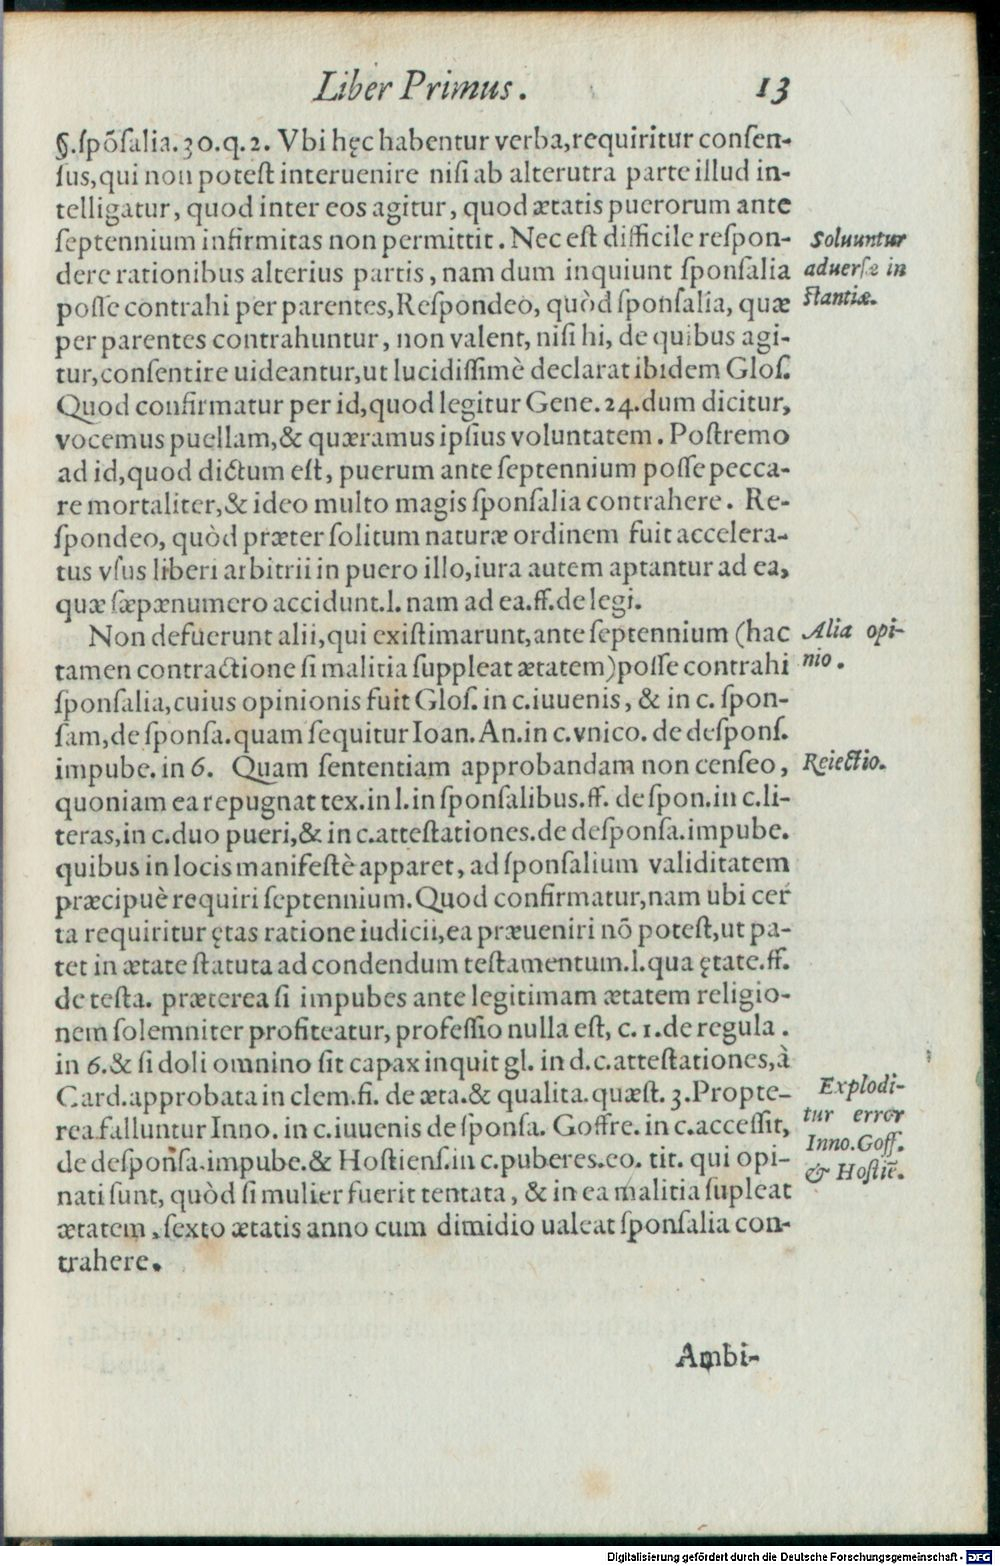 Liber Primus. 13
§.ſpõſalia.30.q.2. Vbi hęc habentur verba,requiritur conſen-
ſus,qui non poteſt interuenire niſi ab alterutra parte illud in-
telligatur, quod inter eos agitur, quod ætatis puerorum ante
ſeptennium infirmitas non permittit. Nec eſt difficile reſpon-
dere rationibus alterius partis, nam dum inquiunt ſponſalia
poſſe contrahi per parentes,Reſpondeo, quòd ſponſalia, quæ
per parentes contrahuntur, non valent, niſi hi, de quibus agi-
tur,conſentire uideantur,ut lucidiſſimè declarat ibidem Gloſ.
Quod confirmatur per id,quod legitur Gene.24.dum dicitur,
vocemus puellam,& quæramus ipſius voluntatem. Poſtremo
ad id,quod dictum eſt, puerum ante ſeptennium poſſe pecca-
re mortaliter,& ideo multo magis ſponſalia contrahere. Re-
ſpondeo, quòd præter ſolitum naturæ ordinem fuit accelera-
tus vſus liberi arbitrii in puero illo,iura autem aptantur ad ea,
quæ ſæpænumero accidunt.l. nam ad ea.ff.de legi.
Soluuntur
aduerſæ in
ſtantiæ.
Non defuerunt alii,qui exiſtimarunt,ante ſeptennium (hac
tamen contractione ſi malitia ſuppleat ætatem)poſſe contrahi
ſponſalia,cuius opinionis fuit Gloſ. in c.iuuenis, & in c. ſpon-
ſam,de ſponſa.quam ſequitur Ioan. An.in c.vnico. de deſponſ.
impube. in 6. Quam ſententiam approbandam non cenſeo,
quoniam ea repugnat tex.in l.in ſponſalibus.ff. de ſpon.in c.li-
teras,in c.duo pueri,& in c.atteſtationes.de deſponſa.impube.
quibus in locis manifeſtè apparet, ad ſponſalium validitatem
præcipuè requiri ſeptennium.Quod confirmatur,nam ubi cer
ta requiritur ętas ratione iudicii,ea præueniri nõ poteſt,ut pa-
tet in ætate ſtatuta ad condendum teſtamentum.l.qua ętate.ff.
de teſta. præterea ſi impubes ante legitimam ætatem religio-
nem ſolemniter profiteatur, profeſſio nulla eſt, c. 1.de regula.
in 6.& ſi doli omnino ſit capax inquit gl. in d.c.atteſtationes,à
Card.approbata in clem.fi. de æta.& qualita.quæſt. 3.Propte-
rea falluntur Inno. in c.iuuenis de ſponſa. Goffre. in c.acceſſit,
de deſponſa.impube.& Hoſtienſ.in c.puberes.eo. tit. qui opi-
nati ſunt, quòd ſi mulier fuerit tentata, & in ea malitia ſupleat
ætatem, ſexto ætatis anno cum dimidio ualeat ſponſalia con-
trahere.
Alia opi-
nio.
Reiectio.
Explodi-
tur error
Inno.Goff.
& Hoſtiẽ.
Ambi-
Digitalisierung gefördert durch die Deutsche Forschungsgemeinschaft - DFG